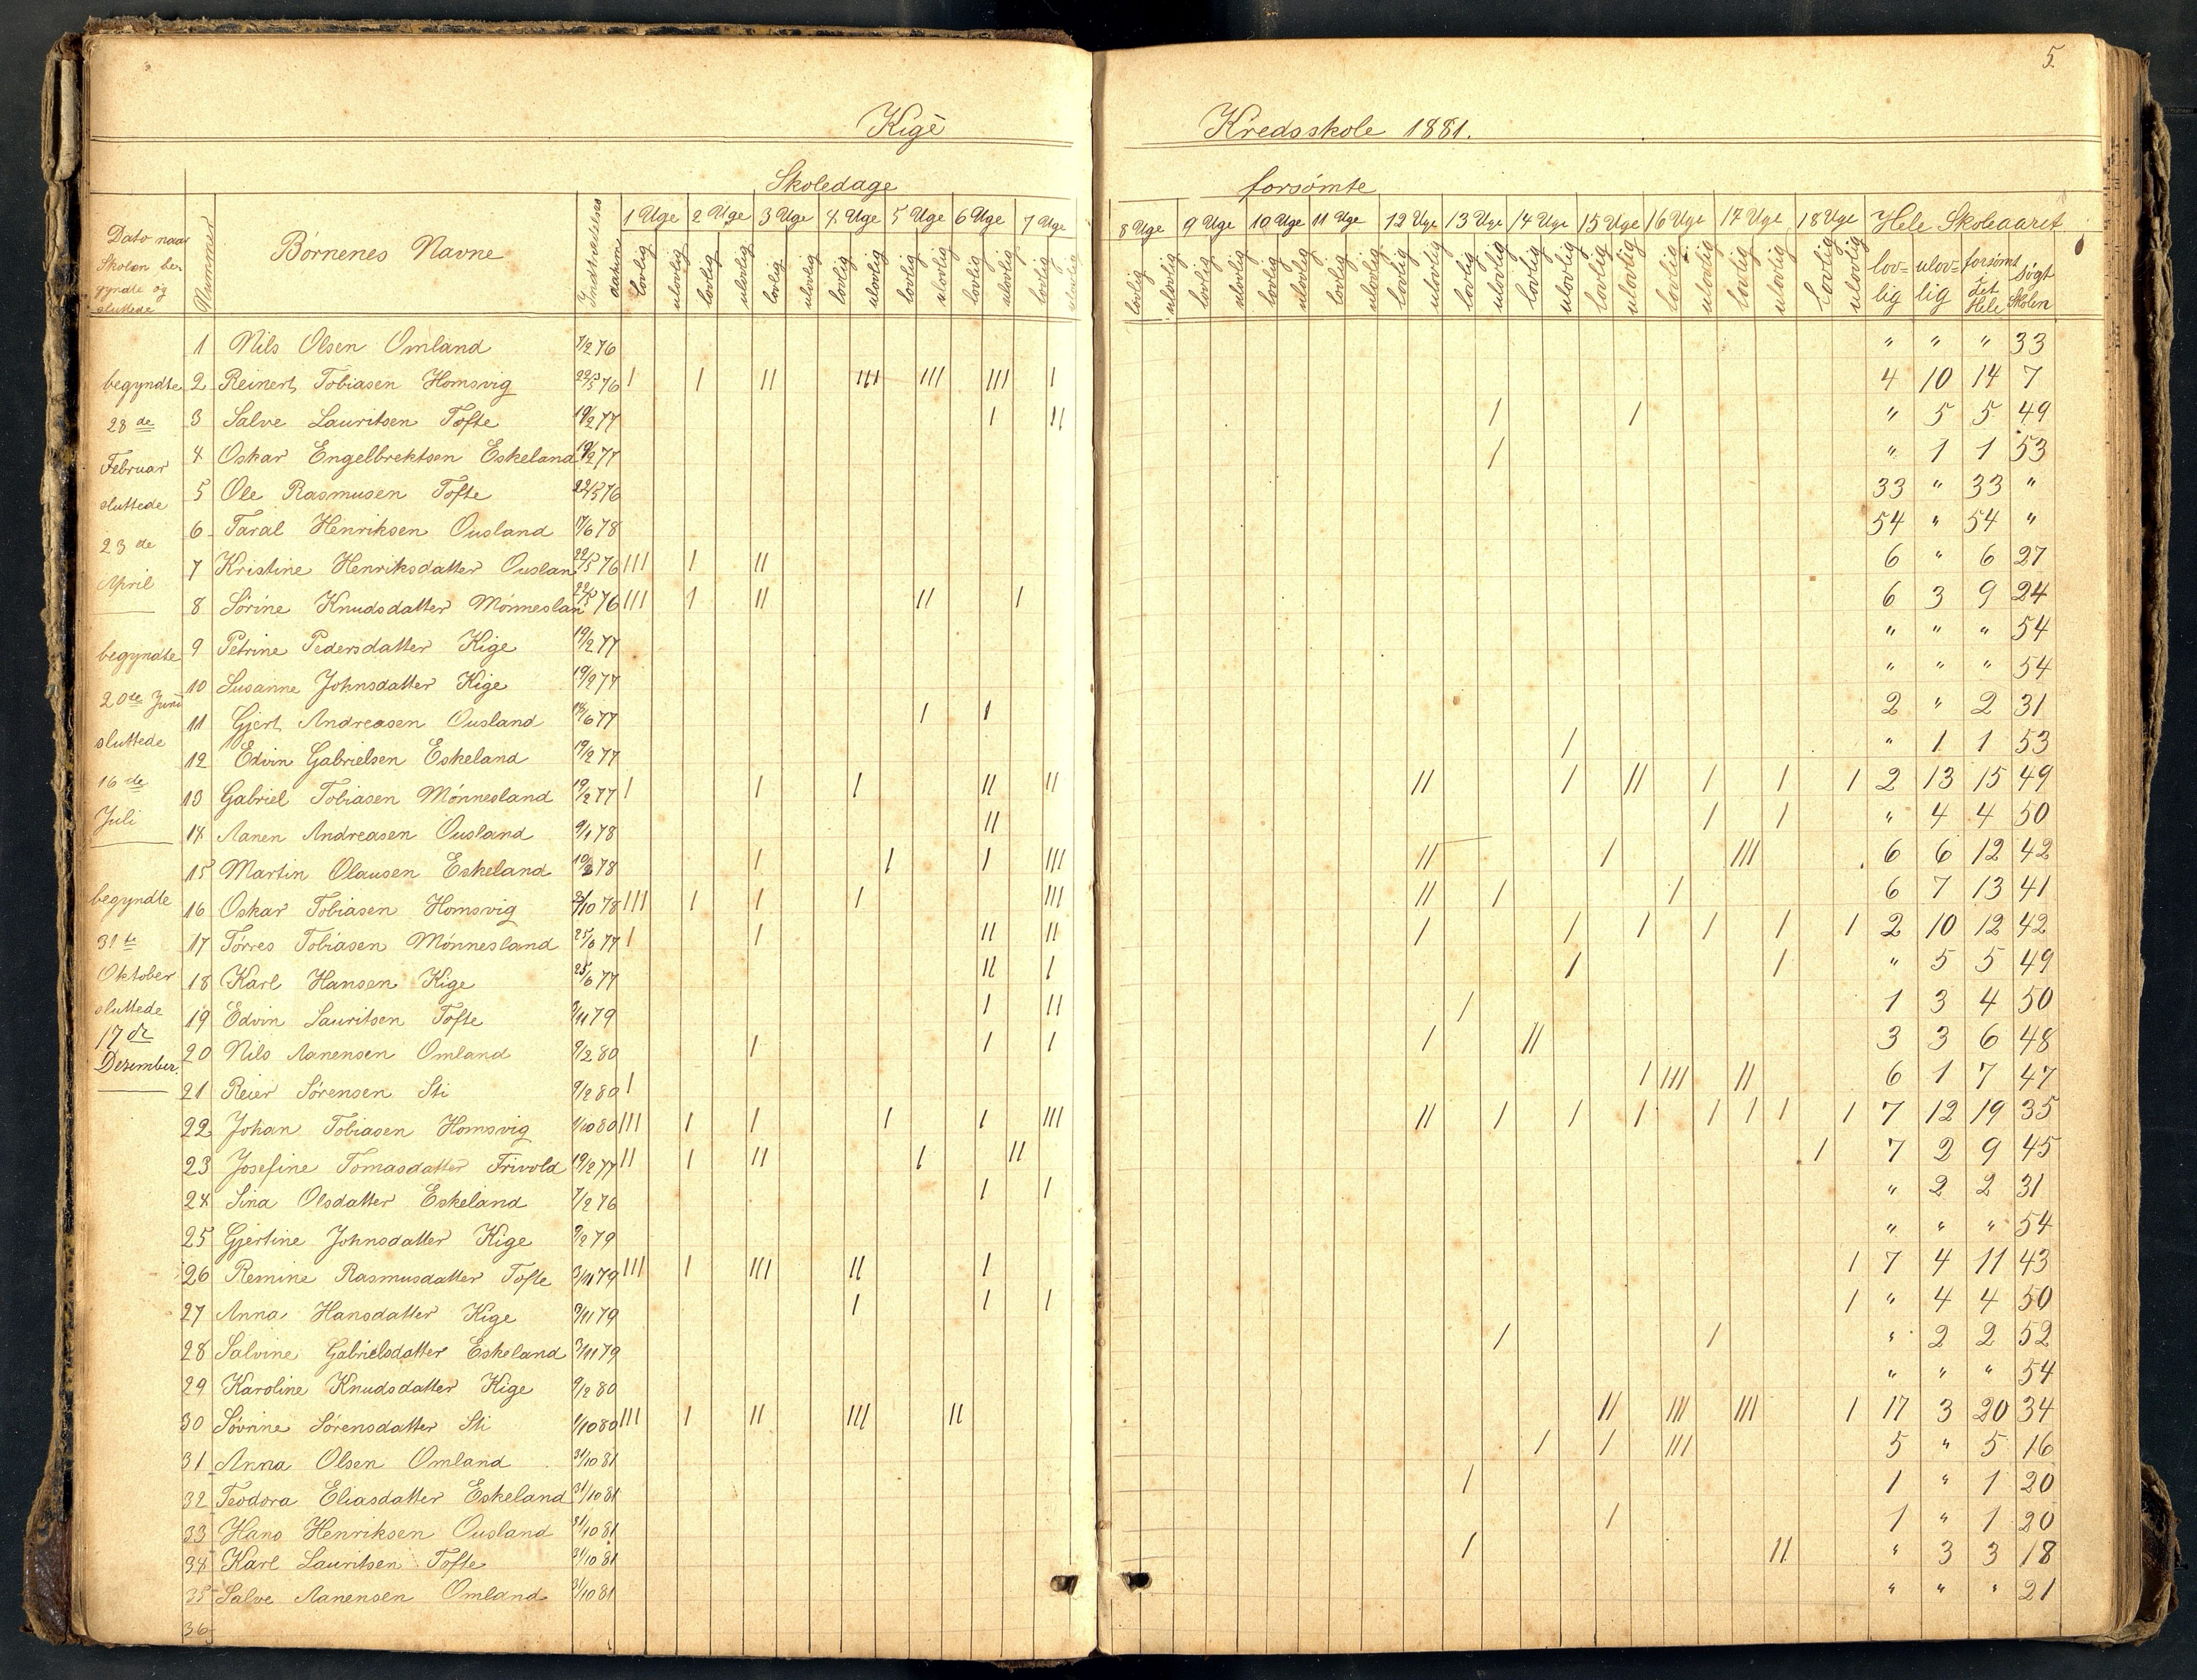 5.
Kige Kredsskole 1881.
Skoledage forsømte
Dato naar Skolen begyndte og sluttede
Nummer
Børnenes Navne
Indtrædelsesdatum
1 Uge 2 Uge 3 Uge 4 Uge 5 Uge 6 Uge 7 Uge 8 Uge 9 Uge 10 Uge 11 Uge 12 Uge 13 Uge 14 Uge 15 Uge 16 Uge 17 Uge 18 Uge Hele Skoleaaret
lovlig ulovlig lovlig ulovlig lovlig ulovlig lovlig ulovlig lovlig ulovlig lovlig ulovlig lovlig ulovlig lovlig ulovlig lovlig ulovlig lovlig ulovlig lovlig ulovlig lovlig ulovlig lovlig ulovlig lovlig ulovlig lovlig ulovlig lovlig ulovlig lovlig ulovlig lovlig ulovlig
lov=lig ulov=lig forsømt det Hele søgt Skolen
begyndte
28de
Februar
sluttede
23de
April
begyndte
20de Juni
sluttede
16de
Juli
begyndte
31te
Oktober
sluttede
17de
Desember.
1 Nils Olsen Omland 7/2 76 " " " 33
2 Reinert Tobiasen Homsvig 22/5 76 I I II III III III I 4 10 14 7
3 Salve Lauritsen Tofte 19/2 77 I II I I " 5 5 49
4 Oskar Engelbrektsen Eskeland 19/2 77 I " 1 1 53
5 Ole Rasmusen Tofte 22/5 76 33 " 33 "
6 Taral Henriksen Ousland 17/6 78 54 " 54 "
7 Kristine Henriksdatter Ouslan 22/5 76 III I II 6 " 6 27
8 Sörine Knudsdatter Mónneslan 22/5 76 III I II II I 6 3 9 24
9 Petrine Pedersdatter Kige 19/2 77 " " " 54
10 Susanne Johnsdatter Kige 19/2 77 " " " 54
11 Gjert Andreasen Ousland 18/6 77 I I 2 " 2 31
12 Edvin Gabrielsen Eskeland 19/2 77 I " 1 1 53
13 Gabriel Tobiasen Mónnesland 19/2 77 I I I II II II I II I I I 2 13 15 49
14 Aanen Andreasen Ousland 9/1 78 II I I " 4 4 50
15 Martin Olausen Eskeland 78 I I I III II I III 6 6 12 42
16 Oskar Tobiasen Homsvig 78 III I I I III II I I 6 7 13 41
17 Tórres Tobiasen Mónnesland 25/6 77 I I II II I I I I I I 2 10 12 42
18 Karl Hansen Kige 25/6 77 II I I I " 5 5 49
19 Edvin Lauritsen Tofte 3/11 79 I II I 1 3 4 50
20 Nils Aanensen Omland 9/2 80 I I I I II 3 3 6 48
21 Reier Sörensen Sti 9/2 80 I I III II 6 1 7 47
22 Johan Tobiasen Homsvig 1/10 80 III I I I I III II I I I I I I I 7 12 19 35
23 Josefine Tomasdatter Frivold 19/2 77 II I II I II I 7 2 9 45
24 Sina Olsdatter Eskeland 7/2 76 I I " 2 2 31
25 Gjertine Johnsdatter Kige 79 " " " 54
26 Remine Rasmusdatter Tofte 3/11 79 III I III II I I 7 4 11 43
27 Anna Hansdatter Kige 3/11 79 I I I I " 4 4 50
28 Salvine Gabrielsdatter Eskeland 3/11 79 I I " 2 2 52
29 Karoline Knudsdatter Kige 9/2 80 " " " 54
30 Sövrine Sörensdatter Sti 1/10 80 III I II III II II III III I 17 3 20 34
31 Anna Olsen Omland 31/10 81 I I III 5 " 5 16
32 Teodora Eliasdatter Eskeland 31/10 81 I 1 " 1 20
33 Hans Henriksen Ousland 31/10 81 I 1 " 1 20
34 Karl Lauritsen Tofte 31/10 81 I II " 3 3 18
35 Salve Aanensen Omland 31/10 81 " " " 21
36